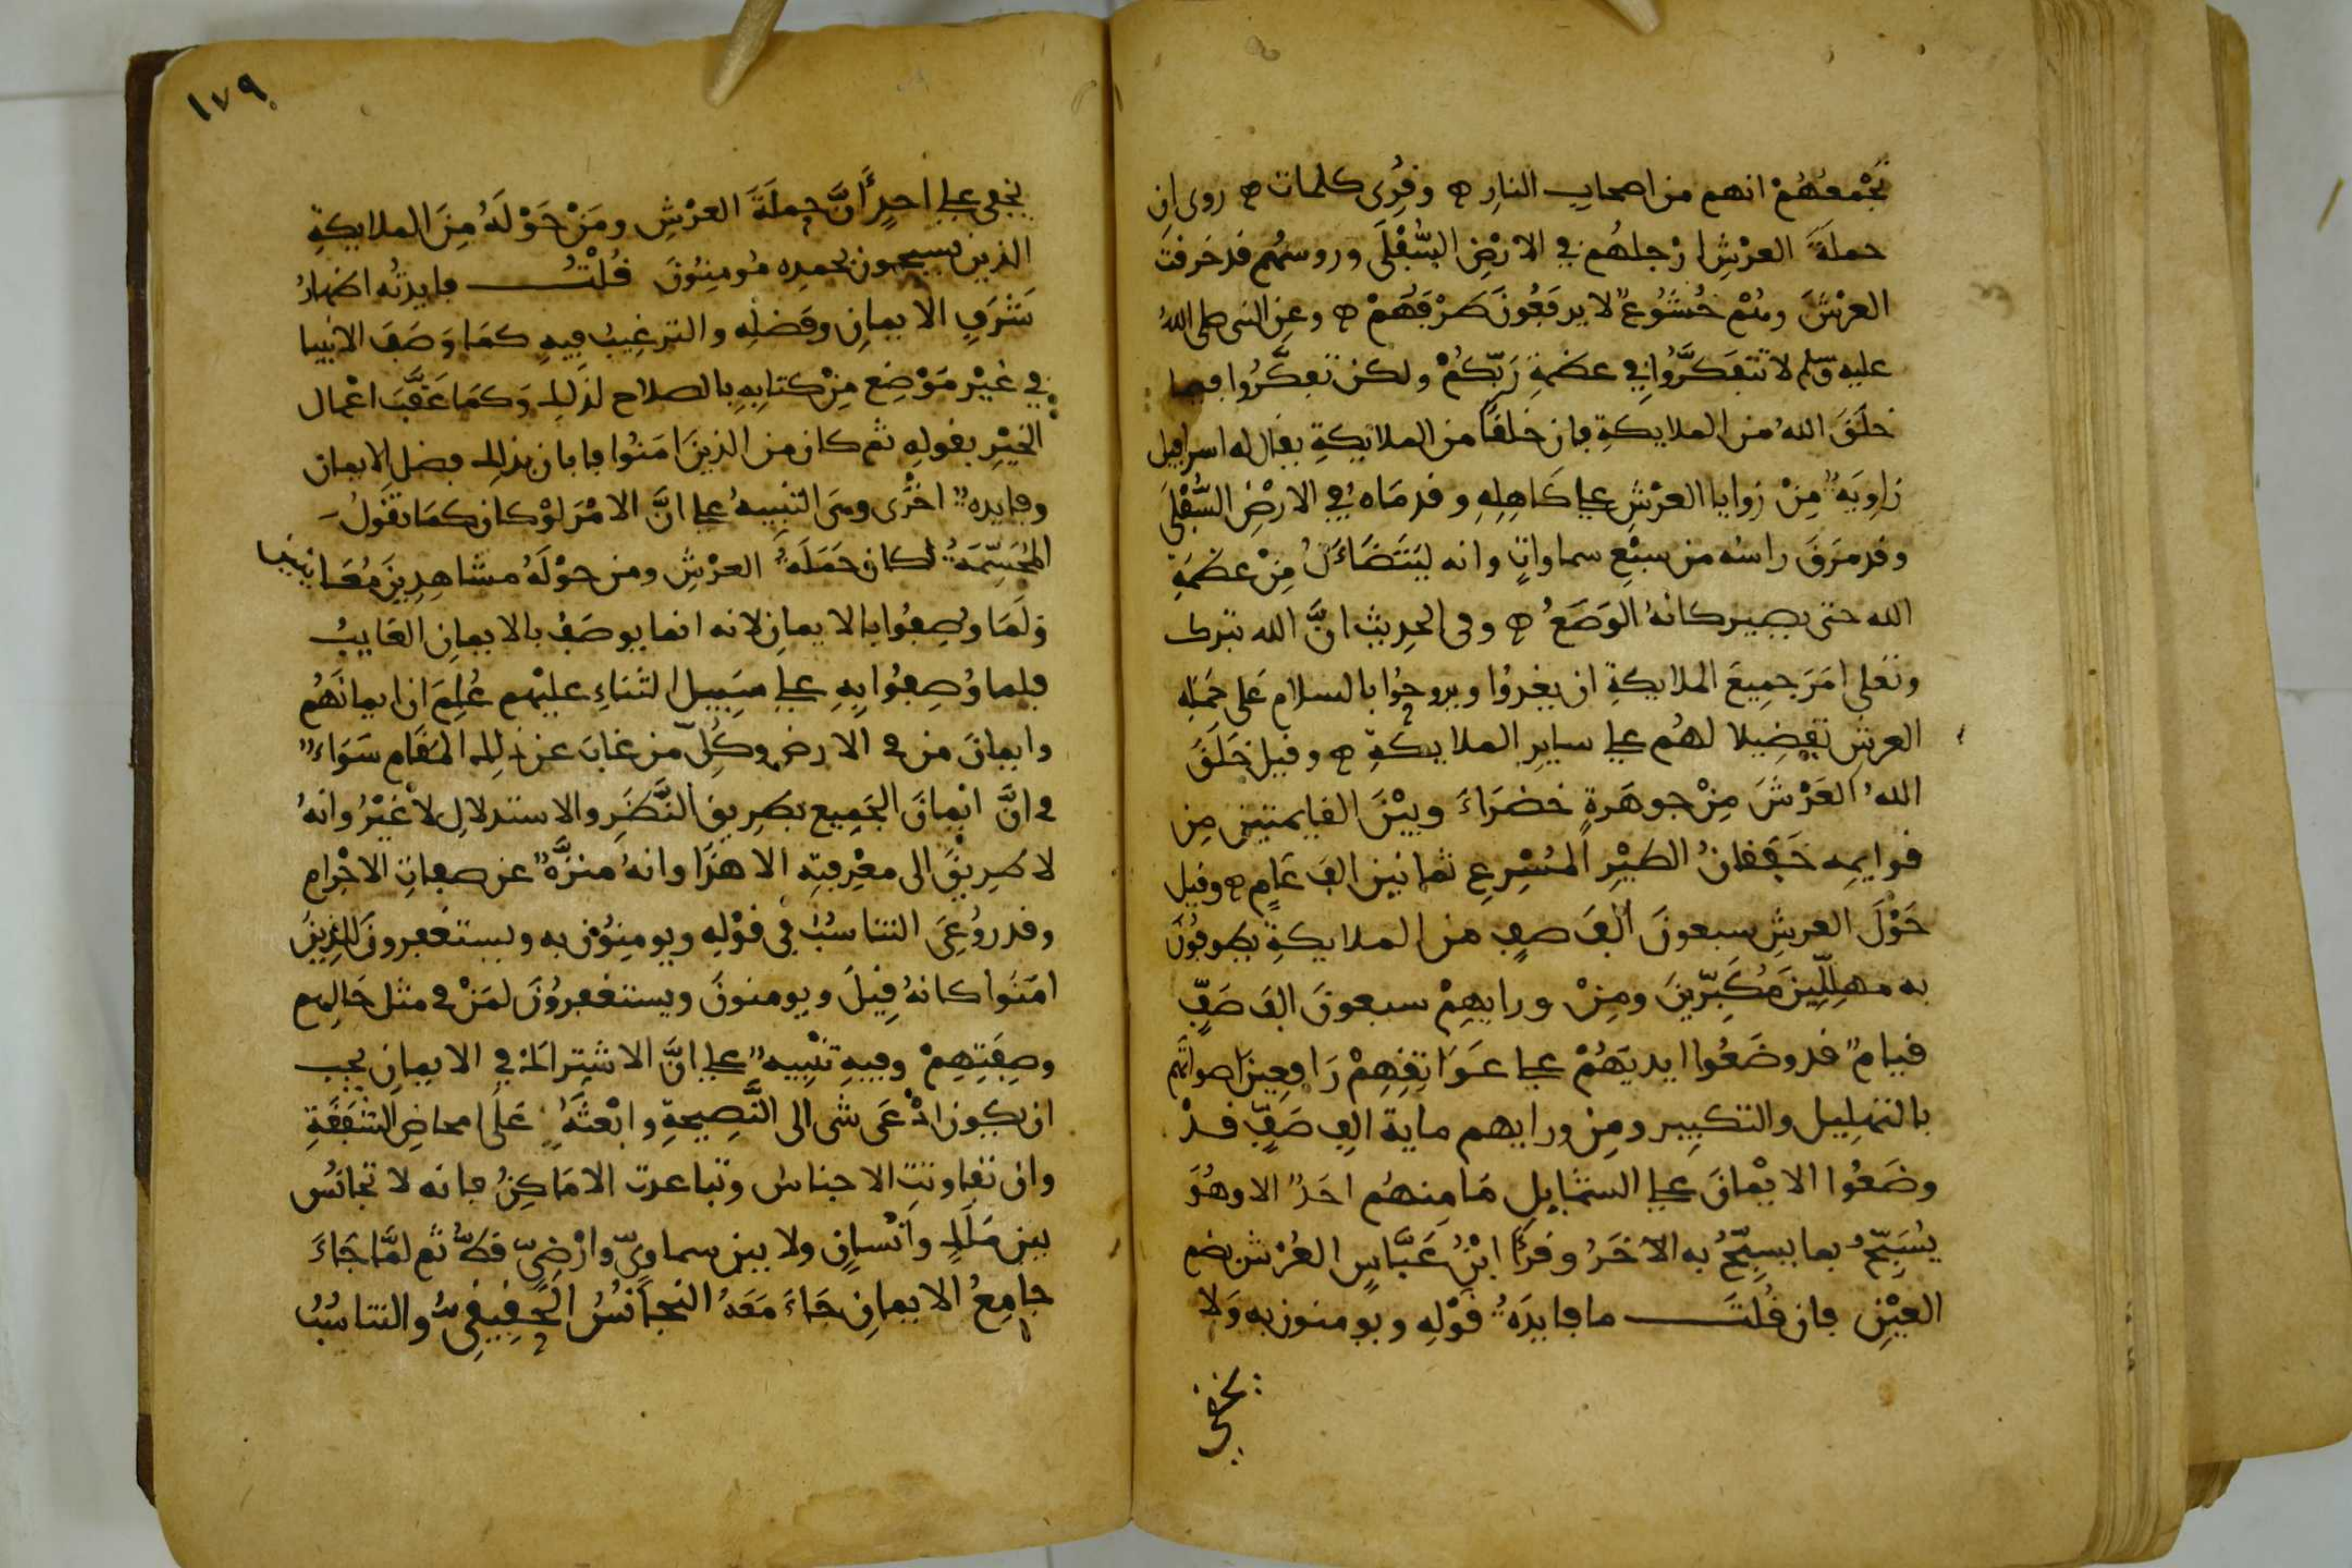 تجْمعُهُمْ انهم من اصحاب النارِ ۞ وقُرِئ كلمات ۞ روى ان
حملةَ العرْشِ ارْجلهُم في الارْضِ السُّفْلَى وروسهُم قد خرقت
العرْشَ وهُمْ خُشُوعٌ لا يرفَعُونَ طَرْفَهُمْ ۞ وعنِ النبى صلى الله
عليه وسلم لا تتفَكرَّوُا في عظمةِ رَبّكُمْ ولكن تفكَّرُوا فيما
خلَقَ اللهُ من الملايكةِ فان خلقًا من الملايكةِ يقال له اسرافيل
زاوِيَةٌ مِنْ زوايا العرْشِ على كَاهِلِهِ وقدمَاهُ في الارْضِ السُّفْلَى
وقد مَرَقَ راسُه من سبْعِ سماواتٍ وانه ليَتَضَاءَلُ مِنْ عظمَةِ
الله حتى يصير كانهُ الوَصَعُ ۞ وفى الحدِيث انَّ الله تبرك
وتعلى امَرَ جميعَ الملايكةِ ان يغدُوا ويروحُوا بالسلام عَلى حَمَلة
العرشِ تفضِيلا لهُم على سايرِ الملايكةِ ۞ وقيل خَلَقَ
اللهُ العَرْشَ مِنْ جوهَرةٍ خضرَاءَ وبيْنَ القايمتينِ مِن
قوايمِه خَفَقانُ الطيْرِ المُسْرِعِ ثمانين الفَ عَامٍ ۞ وقيل
حَوْلَ العرشِ سبعونَ ألفَ صفٍ من الملايكةِ يطوفُونَ
به مهلِّلِينَ مُكَبِّرينَ ومِنْ ورايهِمْ سبعونَ الفَ صَفٍّ
قيامٌ قد وضَعُوا ايديَهُمْ على عَوَاتِقهِمْ رَافِعِينَ اصواتَهم
بالتهلِيل والتكبِيرِ ومِن ورايهم ماية الفِ صَفٍّ قدْ
وضَعُوا الايْمانَ على الشمَايلِ مَا مِنهُم احَدٌ الا وهُوَ
يُسَبِّحُ بما يسبِّحُ به الآخَرُ وقرَأ ابْنُ عَبَّاسٍ العُرْش بضم
العيْنِ فان قُلتَ ما فايدَةُ قَوْلِهِ ويومنون به وَلا
يخفى
١٧٩
يخفى على احدٍ أنَّ حملَةَ العرْشِ ومَنْ حَوْلَهُ مِنَ الملايكةِ
الذين يسبحون بحمدِه مُومِنِنُونَ قُلْتُ فايدتُه اظهارُ
شَرَفِ الايمانِ وفَضلِهِ والترغِيبُ فِيهِ كمَا وَصَفَ الانبيا
في غيْر مَوْضِع مِنْ كتابِهِ بالصلاح لذلك وَكمَا عَقَّبَ اعْمال
الخيْرِ بقولِهِ ثم كان من الذينَ امَنُوا فابان بذلك فضل الايمان
وفايدةٌ اخْرَى وهى التنبِيهُ على انَّ الامْرَ لوْ كان كمَا تقولُ
المُجَسِّمَةُ لكان حَمَلَةُ العرْشِ ومن حوْلَهُ مشاهِدِينَ مُعَاينينَ
وَلَمَا وُصِفُوا بالايمانِ لانه انما يوصَفُ بالايمانِ الغايبُ
فلما وُصِفُوا بِهِ على سَبِيل الثناءِ عليْهم عُلِمَ ان ايمانَهُم
وايمانَ من في الارضِ وكُلّ من غابَ عن ذلك المقَام سَوَاءٌ
في انَّ ايْمانَ الجمِيعِ بطرِيقِ النَّظَرِ والاستدلالِ لا غيْرُ وانهُ
لا طرِيقَ الى معْرِفتِه الا هذا وانهُ منزَّهٌ عن صفاتِ الاجْرام
وقد رُوعِىَ التناسُبُ في قوْلِهِ ويومِنوُن به ويستغفرونَ للذِينَ
امَنوا كانهُ قِيلَ ويومنونَ ويستغفروُنَ لمَنْ في مثل حَالِهم
وصِفَتِهِمْ وفيهِ تنْبِيهٌ على انَّ الاشتِراكَ في الايمانِ يجب
ان يكون ادْعَى شى الى النَّصِيحةِ وابْعثَهُ عَلَى امحاضِ الشفَقَةِ
وان تفاوتتِ الاجناسُ وتباعدت الامَاكِنُ فانه لا تجانسُ
بين مَلَكٍ وانْسانٍ ولا بين سماوىٍّ وارْضىٍّ قطُّ ثم لمَّا جَاءَ
جامِعُ الايمانِ جَاءَ مَعَهُ التجانُسُ الحَقِيقىُّ والتناسُبُ